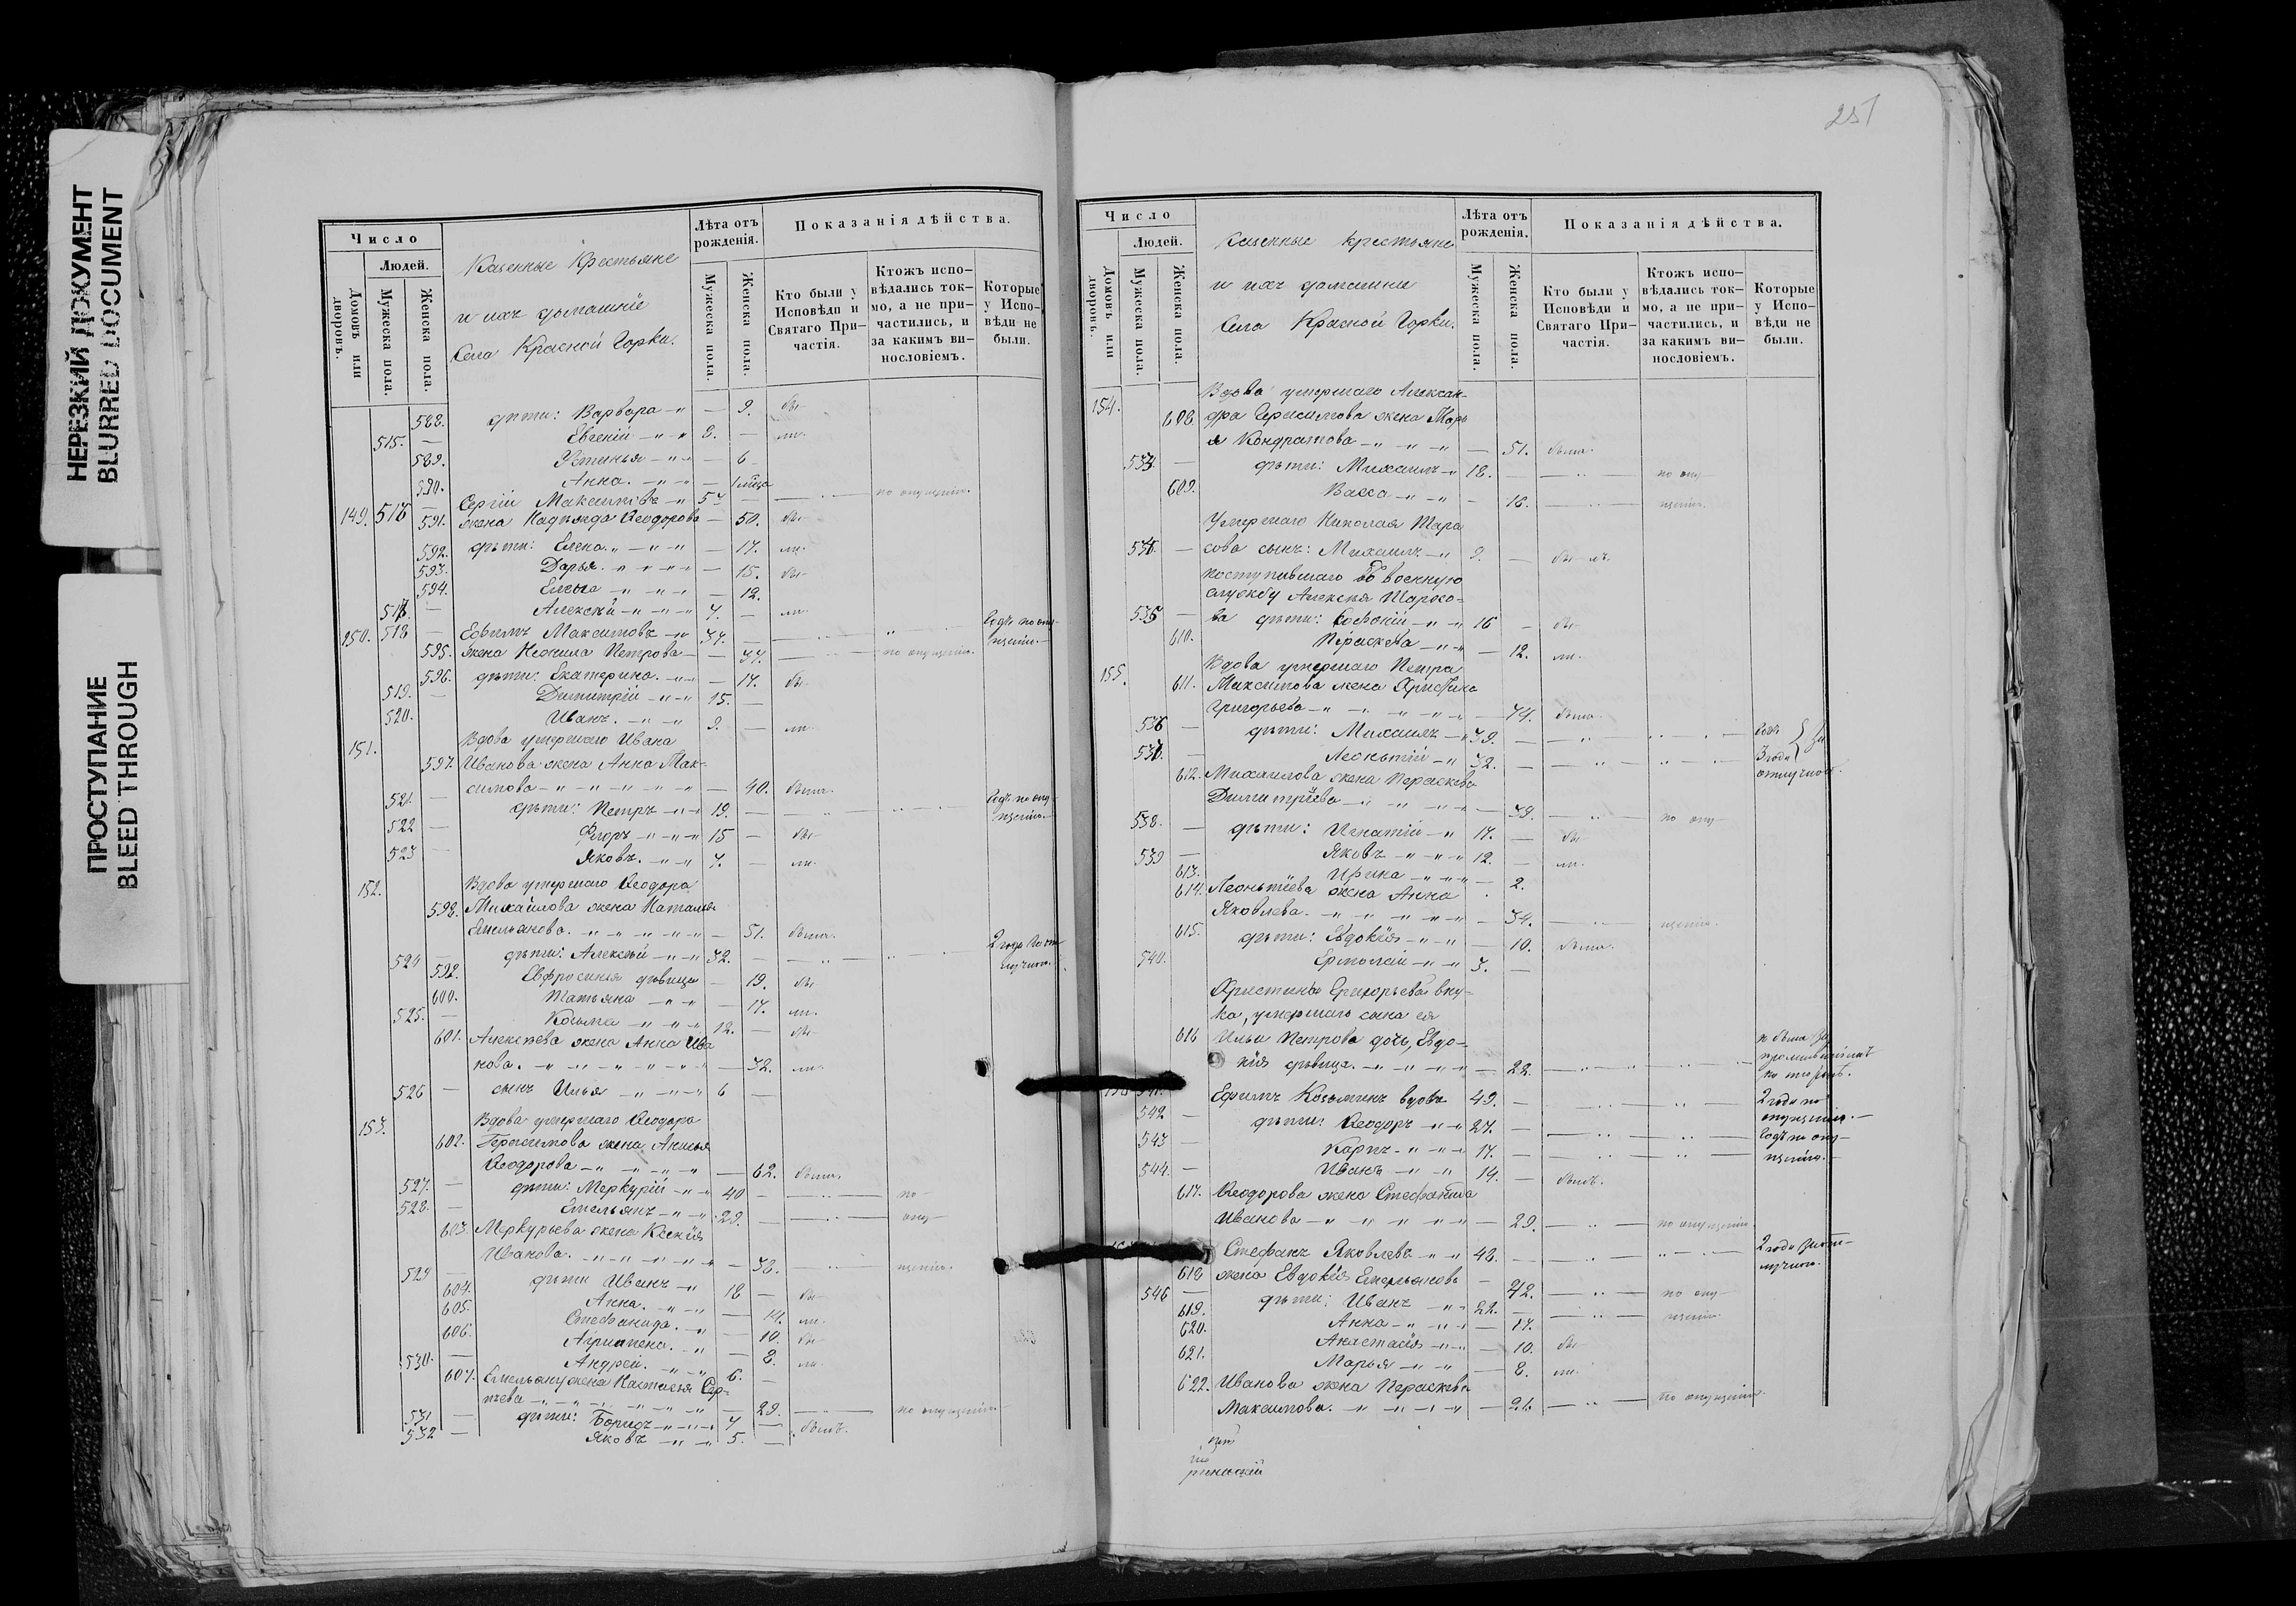 НЕРЕЗКИЙ ДОКУМЕНТ
BLURRED DOCUMENT
ПРОСТУПАНИЕ
BLEED THROUGH
Число
Людей.
Домовъ или дворовъ.
Мужеска пола.
Женска пола.
Казенные Крестьяне
и ихъ домашніе
Села Красной Горки.
Лѣта отъ рожденія.
Мужеска пола.
Женска пола.
Показанія дѣйства.
Кто были у Исповѣди и Святаго Причастія.
Ктожъ исповѣдались токмо, а не причастились, и за какимъ винословіемъ.
Которые у Исповѣди не были.
588. дѣти: Варвара 9. бы-
515. Евгеній 8. ли.
589. Устинья 6
590. Анна.
149. 516 Сергій Максимовъ 57 по опущенію.
591. жена Надежда Ѳеодорова 50. бы-
592. дѣти: Елена 17. ли.
593. Дарья 15. бы-
594. 12.
517. Алексѣй 7. ли.
150. 518 Ефимъ Максимовъ 37. Годъ по опущенію.
595. жена Неонила Петрова 37. по опущенію.
596. дѣти: Екатерина. 17. бы-
519. Димитрій 15.
520. Иванъ. 9. ли.
151. Вдова умершаго Ивана
597. Иванова жена Анна Мак-
симова 40. была.
521. дѣти: Петръ 19. Годъ по опущенію.
522 Ѳлоръ 15 бы-
523 Яковъ. 7. ли.
152. Вдова умершаго Ѳеодора
598. Михайлова жена Наталья
Емельянова. 51. была.
524 дѣти: Алексѣй 32. 2 года
599. Евфросинія дѣвица 19. бы-
600. Татьяна 17. ли.
525. Козьма 12. бы-
601. Алексѣева жена Анна Ива
нова. 32. ли.
526 сынъ Илья 6
153. Вдова умершаго Ѳеодора
602. Герасимова жена Анисья
Ѳеодорова 62. была.
527. дѣти: Меркурій 40 по
528. Емельянъ 29. опу-
603. Меркурьева жена Ксенія
Иванова. 38. щенію.
529 дѣти Иванъ 18 бы-
604. Анна. 14. ли.
605. Стефанида. 10. бы-
606. Агриппена. 8. ли.
530. Андрей. 6.
607. Емельяну жена Настасья Сер-
гѣева 29. по опущенію
531 дѣти: Борисъ 7 былъ.
532 Яковъ 5.
251
Число
Людей.
Домовъ или дворовъ.
Мужеска пола.
Женска пола.
Казенные крестьяне
и ихъ домашніе
Села Красной Горки.
Лѣта отъ рожденія.
Мужеска пола.
Женска пола.
Показанія дѣйства.
Кто были у Исповѣди и Святаго Причастія.
Ктожъ исповѣдались токмо, а не причастились, и за какимъ винословіемъ.
Которые у Исповѣди не были.
154. Вдова умершаго Алексан-
608. дра Герасимова жена Марь
я Кондратова 51. была.
533. дѣти: Михаилъ 18. по опу-
609. Васса 16. щенію.
Умершаго Николая Тара
534. сова сынъ: Михаилъ 9. бы лъ.
поступившаго въ военную
службу Алексѣя Тарасо-
535 ва дѣти: Софоній 16 бы-
610. Параскева 12. ли.
155. Вдова умершаго Петра
611. Максимова жена Христина
Григорьева 74. была.
536 дѣти: Михаилъ 39. Годъ
537. Леонтій 32. 3 года за отлучкой.
612. Михаилова жена Параскева
Димитріева 39. по опу-
538. дѣти: Игнатій 17. бы
539 Яковъ 12. ли.
613. Ирина 2.
614. Леонтьева жена Анна
Яковлева. 34. щенію.
615. дѣти: Евдокія 10. была.
540. Ермолай 3.
Христины Григорьевой вну-
ка, умершаго сына ея
616 Ильи Петрова дочь, Евдо-
кія дѣвица. 22.
Ефимъ Козьминъ вдовъ 49. 2 года по опущенію.
542. дѣти: Ѳеодоръ 27. Годъ по опу-
543 Карпъ 17. щенію.
544. Иванъ 14. былъ.
617. Ѳеодорова жена Стефанида
Иванова 29. по опущенію.
Стефанъ Яковлевъ 48. 2 года
618 жена Евдокія Емельянова 42. по опу-
546 дѣти: Иванъ 22. щенію.
619. Анна 17.
620. Анастасія 10. бы-
621. Марья 8. ли.
622. Иванова жена Параскева
Максимова. 21. по опущенію.